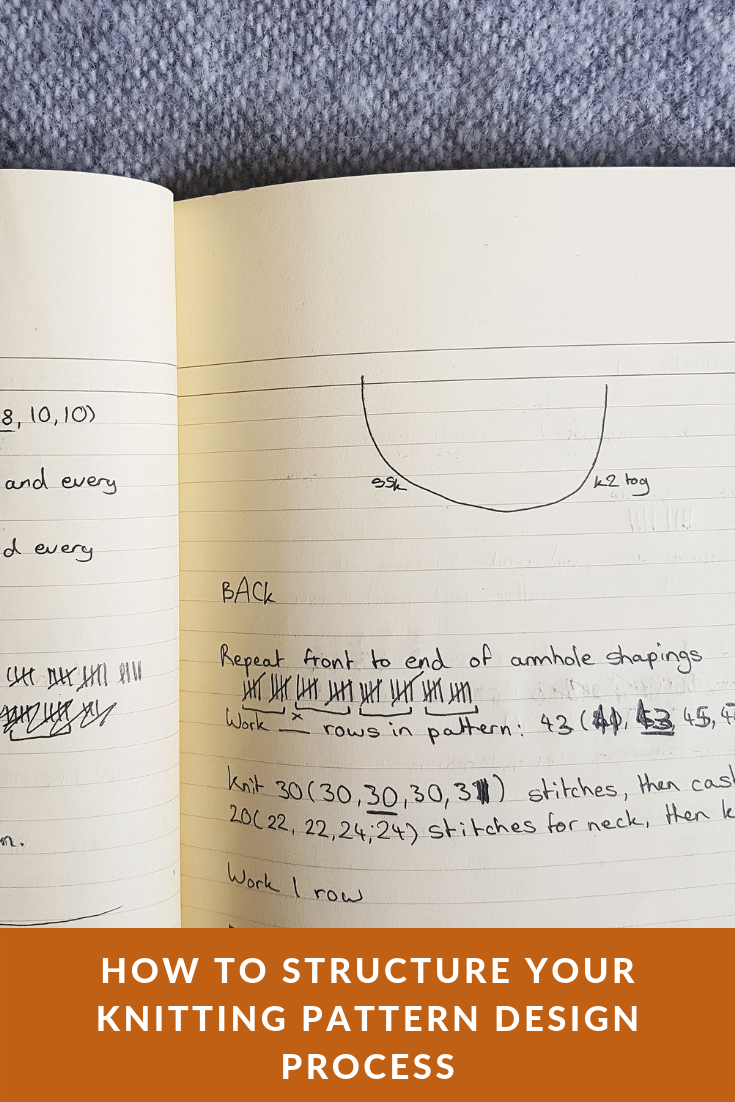 8, 10, 10)
and every
d every
n.
ssk
k2 tog
BACK
Repeat front to end of armhole shapings
Work x rows in pattern: 43 (
45, 4
Knit 30 (30, 30, 30, 31) stitches, then cas
20 (22, 22, 24, 24) stitches for neck, then k
Work 1 row
HOW TO STRUCTURE YOUR
KNITTING PATTERN DESIGN
PROCESS